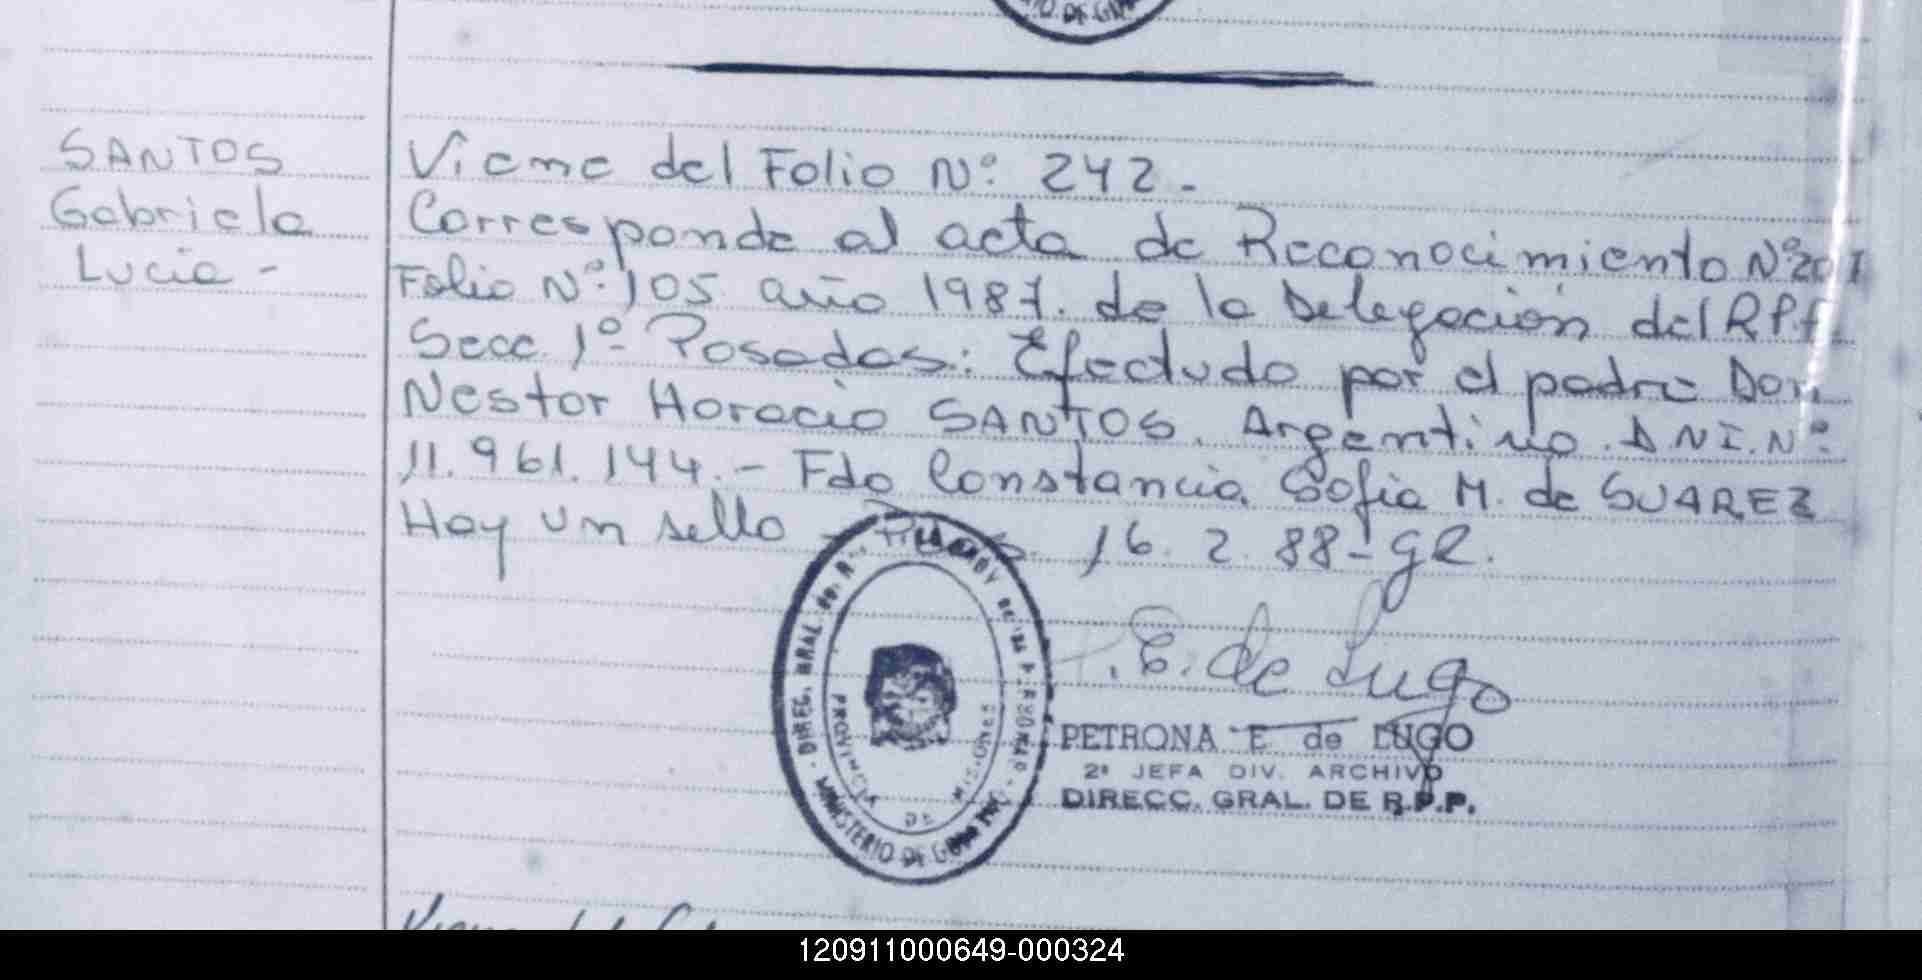 SANTOS
Gabriela
Lucia -
Viene del Folio Nº 242.-
Corresponde al acta de Reconocimiento Nº 201
Folio Nº 105 año 1987. de la Delegación del R.P.P.
Secc. 1º Posadas: Efectudo por el padre Don
Nestor Horacio SANTOS. Argentino. DNI. Nº
11.961.144.- Fdo Constancia Sofia M. de SUAREZ
Hay un sello - 16. 2. 88- gr.
E. de Lugo
PETRONA E de LUGO
2ª JEFA DIV. ARCHIVO
DIRECC. GRAL. DE R.P.P.
PROVINCIA DE MISIONES
MINISTERIO DE
120911000649-000324